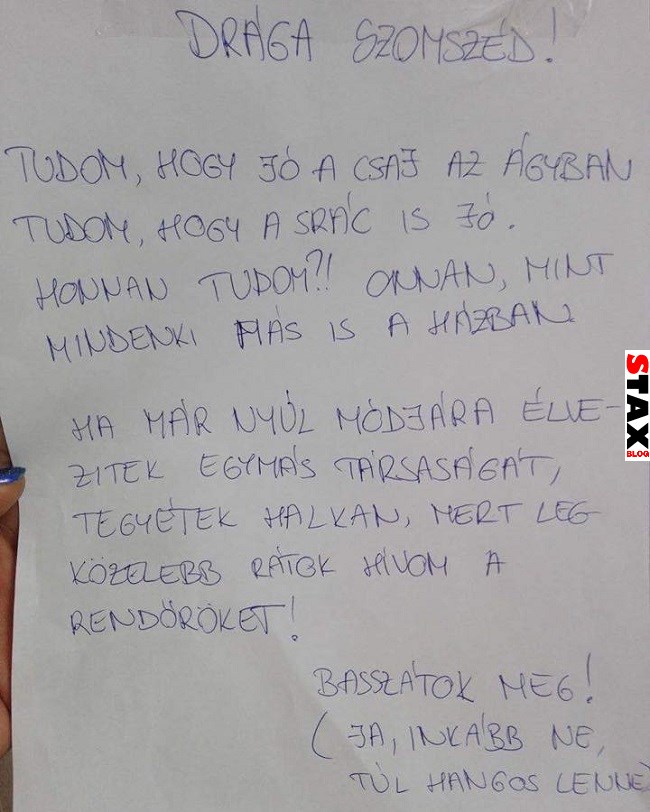 DRÁGA SZOMSZÉD!
TUDOM, HOGY JÓ A CSAJ AZ ÁGYBAN
TUDOM, HOGY A SRÁC IS JÓ.
HONNAN TUDOM?! ONNAN, MINT
MINDENKI MÁS IS A HÁZBAN
HA MÁR NYÚL MÓDJÁRA ÉLVE-
ZITEK EGYMÁS TÁRSASÁGÁT,
TEGYÉTEK HALKAN, MERT LEG-
KÖZELEBB RÁTOK HÍVOM A
RENDŐRÖKET!
BASSZÁTOK MEG!
(JA, INKÁBB NE,
TÚL HANGOS LENNE)
STAX
BLOG